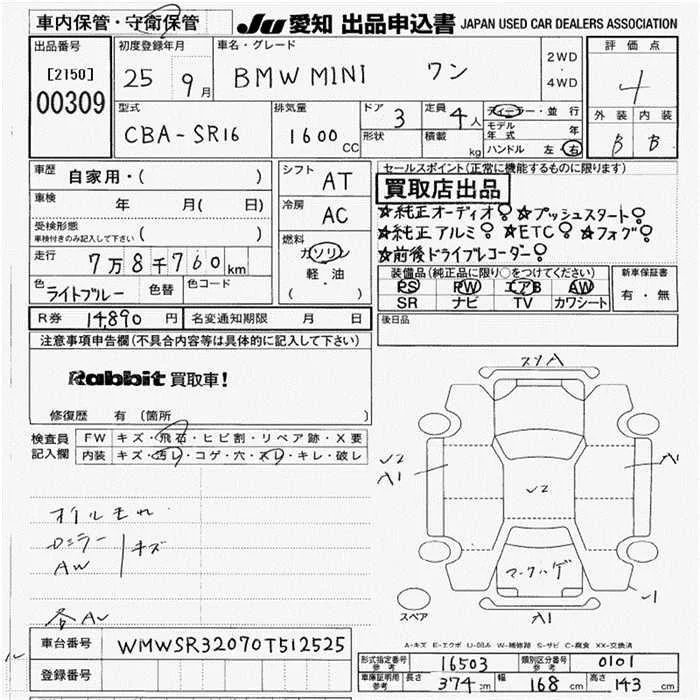 車内保管・守衛保管
JU 愛知 出品申込書 JAPAN USED CAR DEALERS ASSOCIATION
出品番号
[2150]
00309
初度登録年月
25 9月
車名・グレード
BMW MINI ワン
2WD
・
4WD
評価点
4
外装 内装
B B
型式
CBA-SR16
排気量
1600cc
ドア 3
形状
定員 4人
積載 kg
ディーラー・並行
モデル年式 年
ハンドル 左・右
車歴 自家用・( )
車検 年 月( 日)
受検形態
車検付きのみ記入して下さい ( )
走行 7万8千760km
色 ライトブルー 色替 色コード
シフト AT
冷房 AC
燃料
ガソリン
軽・油
( )
セールスポイント(正常に機能するものに限ります)
買取店出品
★純正オーディオ ★プッシュスタート
★純正アルミ ★ETC ★フォグ
★前後ドライブレコーダー
装備品(純正品に限り○をつけてください)
PS PW エアB AW
SR ナビ TV カワシート
新車保証書
有・無
R券 14,890円 名変通知期限 月 日
後日品
注意事項申告欄(不具合内容等は具体的に記入して下さい)
Rabbit 買取車!
修復歴 有 (箇所 )
検査員
記入欄
FW キズ・飛石・ヒビ割・リペア跡・X要
内装 キズ・汚レ・コゲ・穴・スレ・キレ・破レ
オイルモレ
ロミラー
AW
キズ
各A
スリA
√2
A1
A1
√2
マークハゲ
A1
スペア
A-キズ E-エクボ U-凹み W-補修跡 S-サビ C-腐食 XX-交換済
車台番号 WMWSR32070T512525
登録番号
型式指定番号 参考 16503
類別区分番号 参考 0101
車庫証明用 参考 長さ 374cm 幅 168cm 高さ 143cm